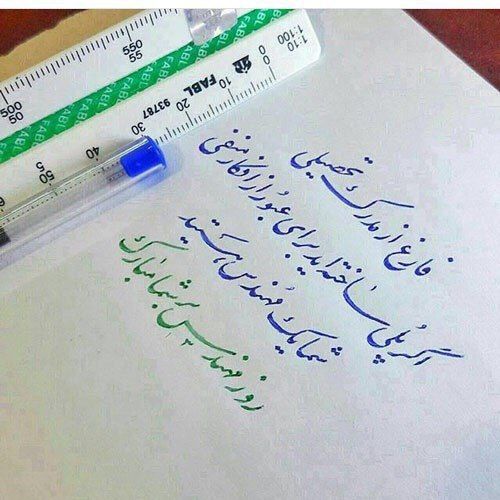 فارغ از مدرک تحصیلی
اگر پلی ساخته اید برای عبور از افکار منفی
شما یک مهندس هستید
روز مهندس بر شما مبارک
500
50
550
55
FABL FABL
1:10
1:100
FABL
93787
0
10
20
30
40
50